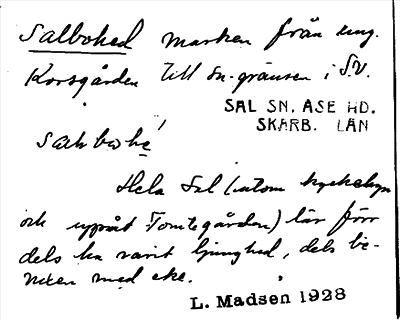 Salbohed marken från ung.
Korsgården till sn-gränsen i S.V.
SAL SN, ASE HD.
SKARB. LÄN
Hela Sal (utom kyrkobyn
och uppåt Tomtegården) lär förr
dels ha varit ljunghed, dels be-
vuxen med eke.
L. Madsen 1928